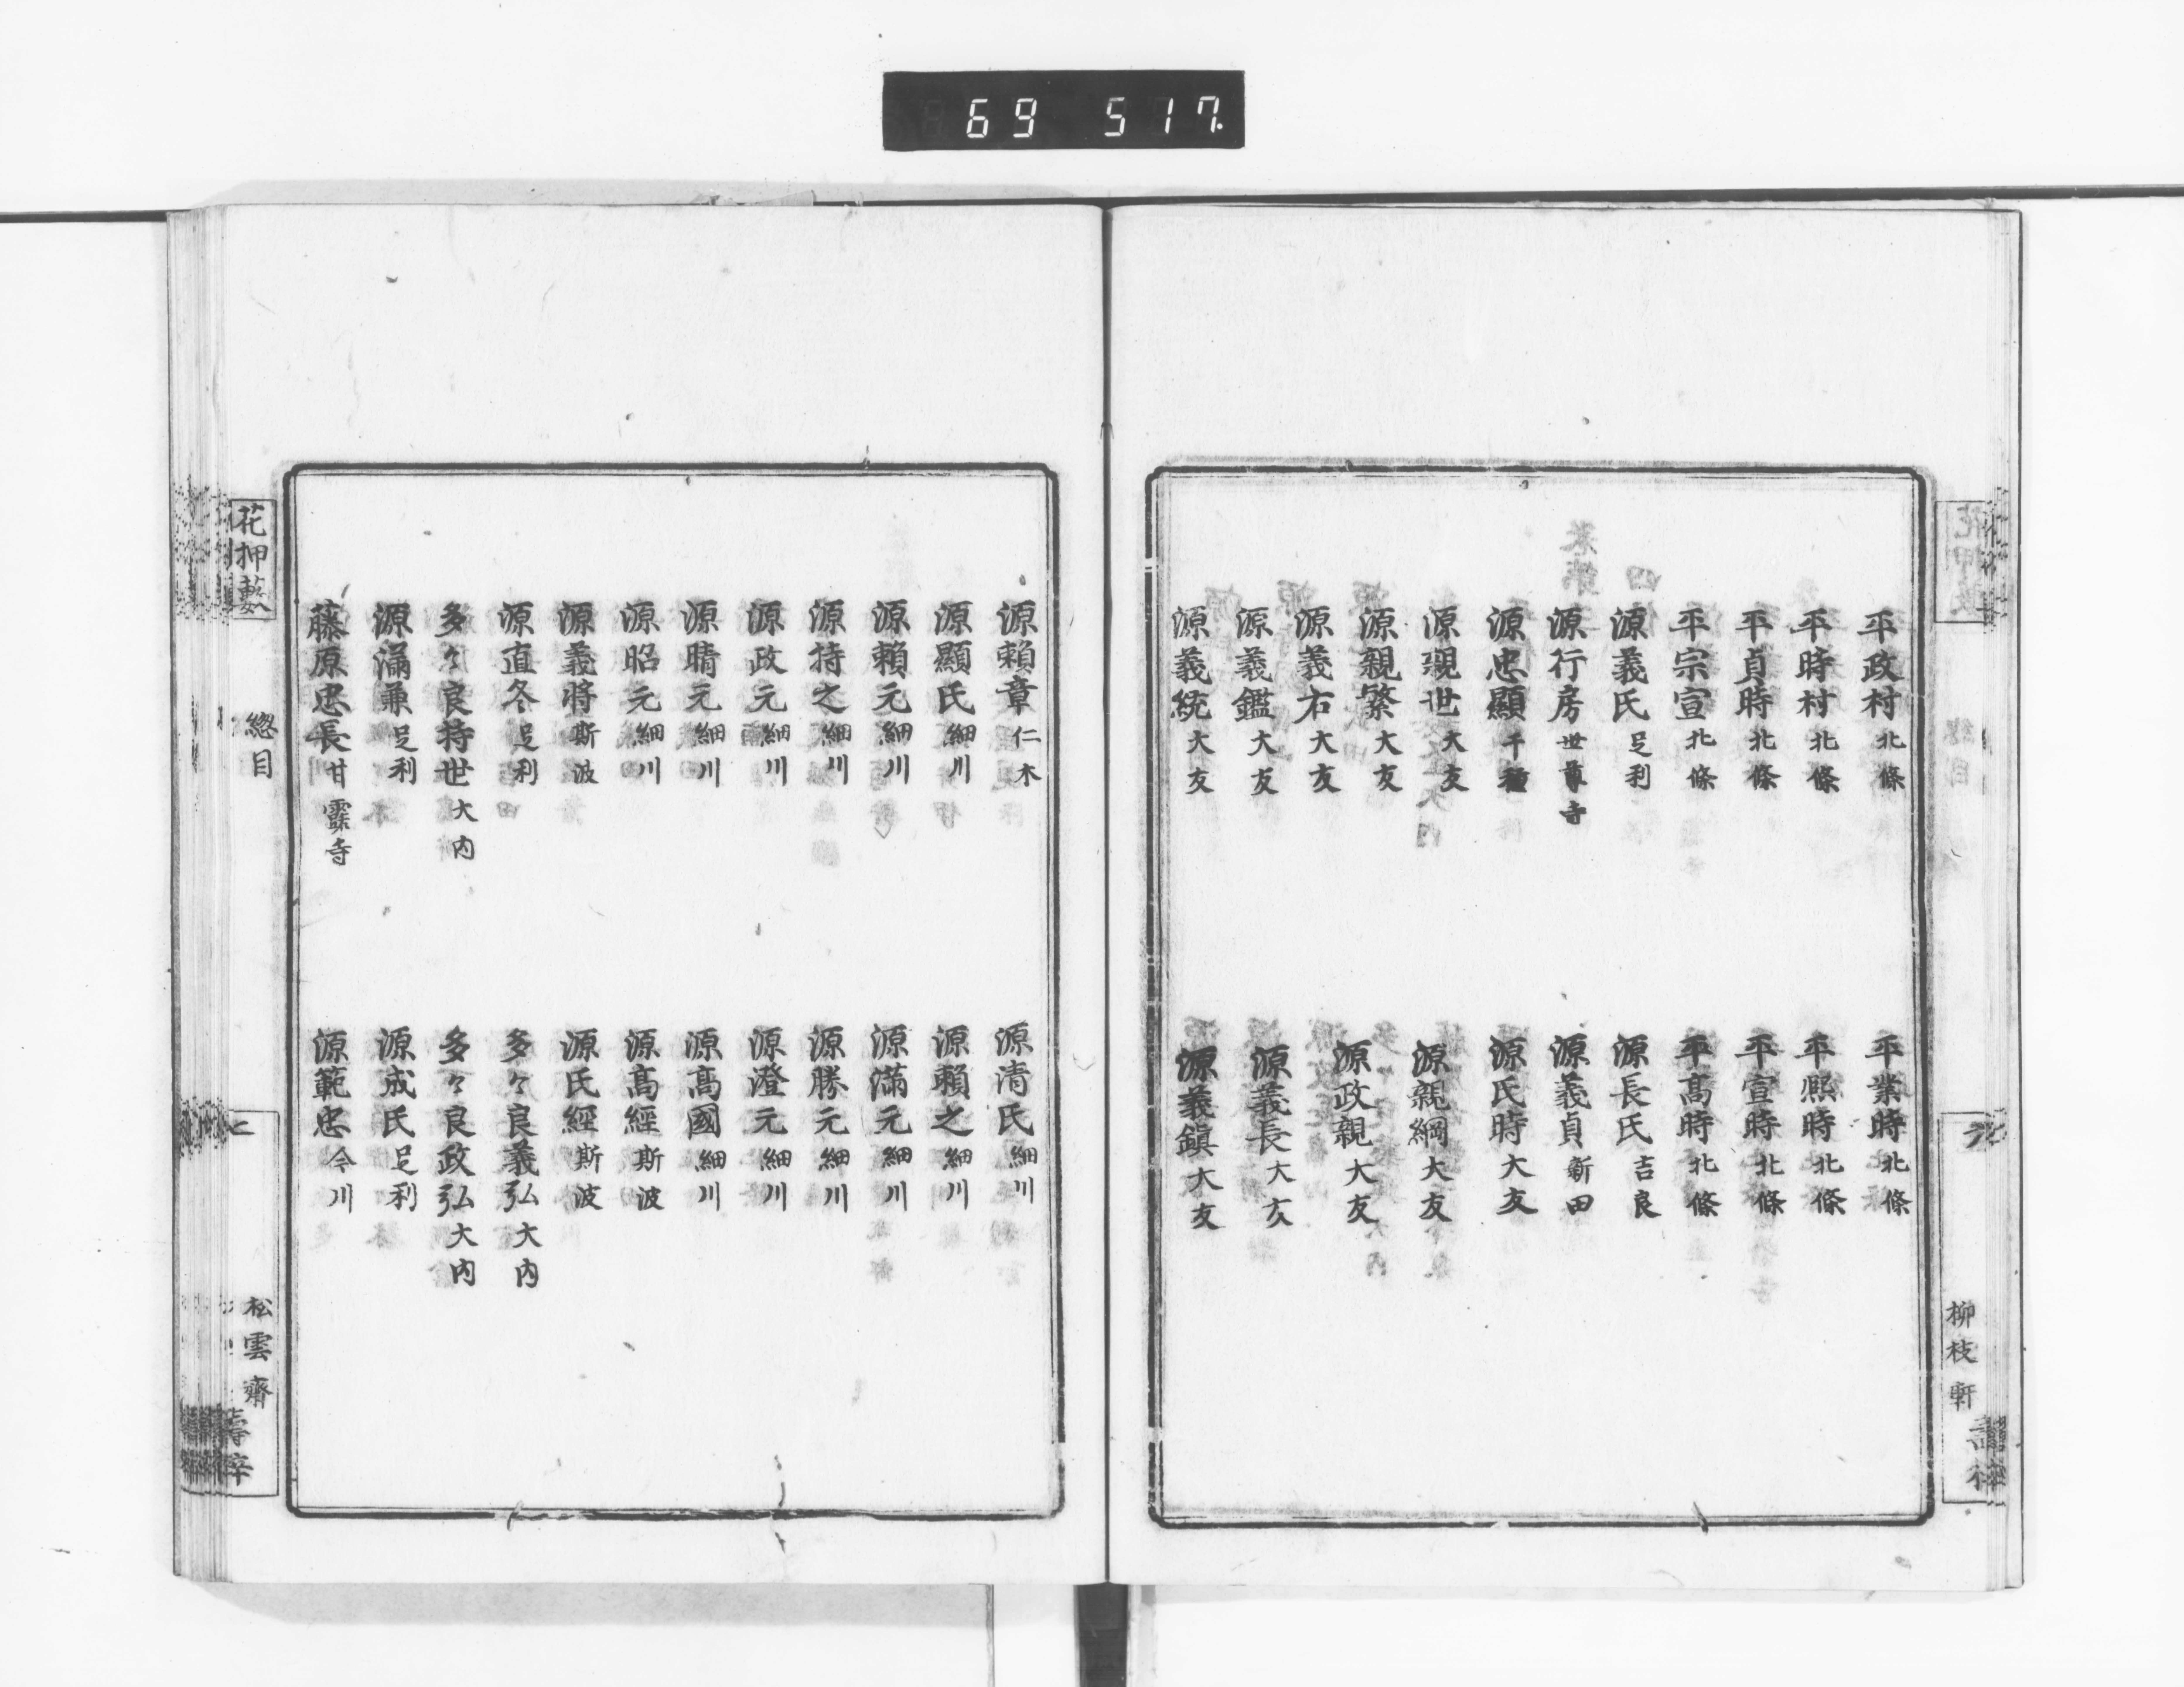 69 517.
平政村 北條
平時村 北條
平貞時 北條
平宗宣 北條
源義氏 足利
源行房 世尊寺
源忠顯 千種
源親世 大友
源親繁 大友
源義右 大友
源義鑑 大友
源義統 大友
平業時 北條
平熈時 北條
平宣時 北條
平高時 北條
源長氏 吉良
源義貞 新田
源氏時 大友
源親綱 大友
源政親 大友
源義長 大友
源義鎮 大友
柳枝軒
源賴章 仁木
源顯氏 細川
源賴元 細川
源持之 細川
源政元 細川
源晴元 細川
源昭元 細川
源義將 斯波
源直冬 足利
多々良持世 大内
源滿兼 足利
藤原忠長 甘露寺
源清氏 細川
源賴之 細川
源滿元 細川
源勝元 細川
源澄元 細川
源高國 細川
源高經 斯波
源氏經 斯波
多々良義弘 大内
多々良政弘 大内
源成氏 足利
源範忠 今川
花押藪
總目
七
松雲齋
壽梓